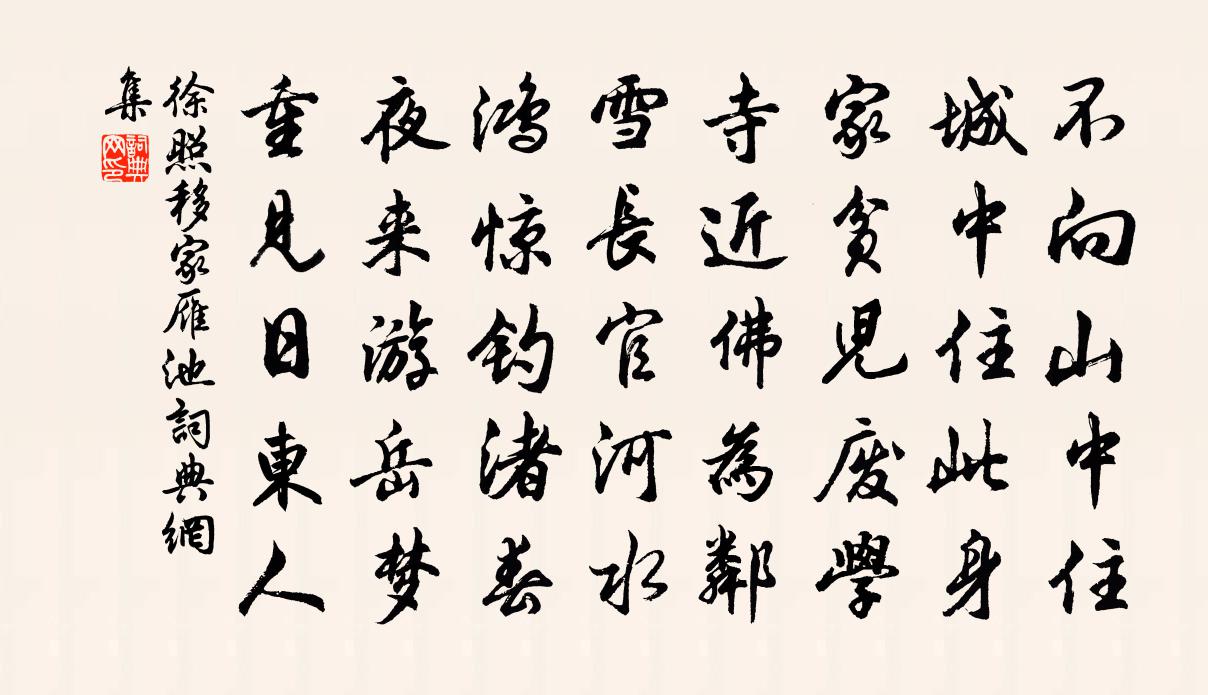 不向山中住
城中住此身
家貧兒廢學
寺近佛為鄰
雪長官河水
鴻惊钓渚春
夜来游岳梦
重見日東人
徐照移家雁池詞典網
集
詞典網印